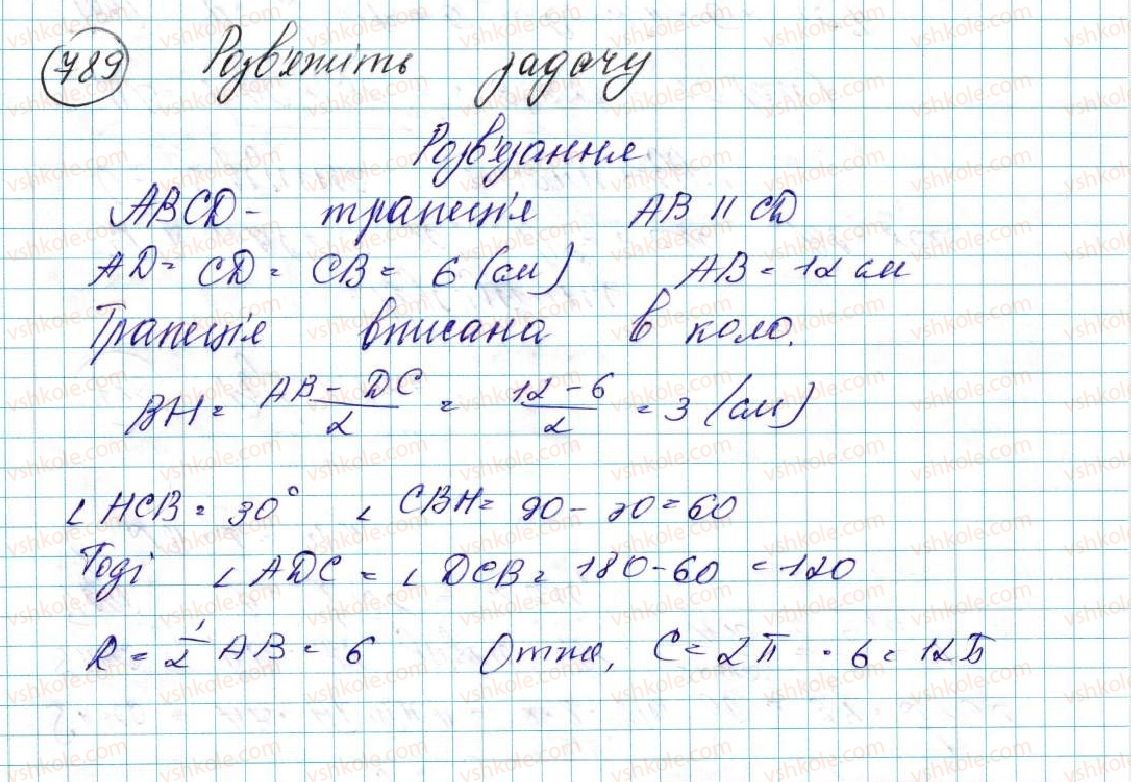 789 Розв'яжіть задачу
Розв'язання
ABCD - трапеція AB || CD
AD = CD = CB = 6 (см) AB = 12 см
Трапеція вписана в коло.
BH = (AB - DC)/2 = (12 - 6)/2 = 3 (см)
∠ HCB = 30° ∠ CBH = 90 - 30 = 60
Тоді ∠ ADC = ∠ DCB = 180 - 60 = 120
R = 1/2 AB = 6 Отже, C = 2π · 6 = 12π
vshkole.com